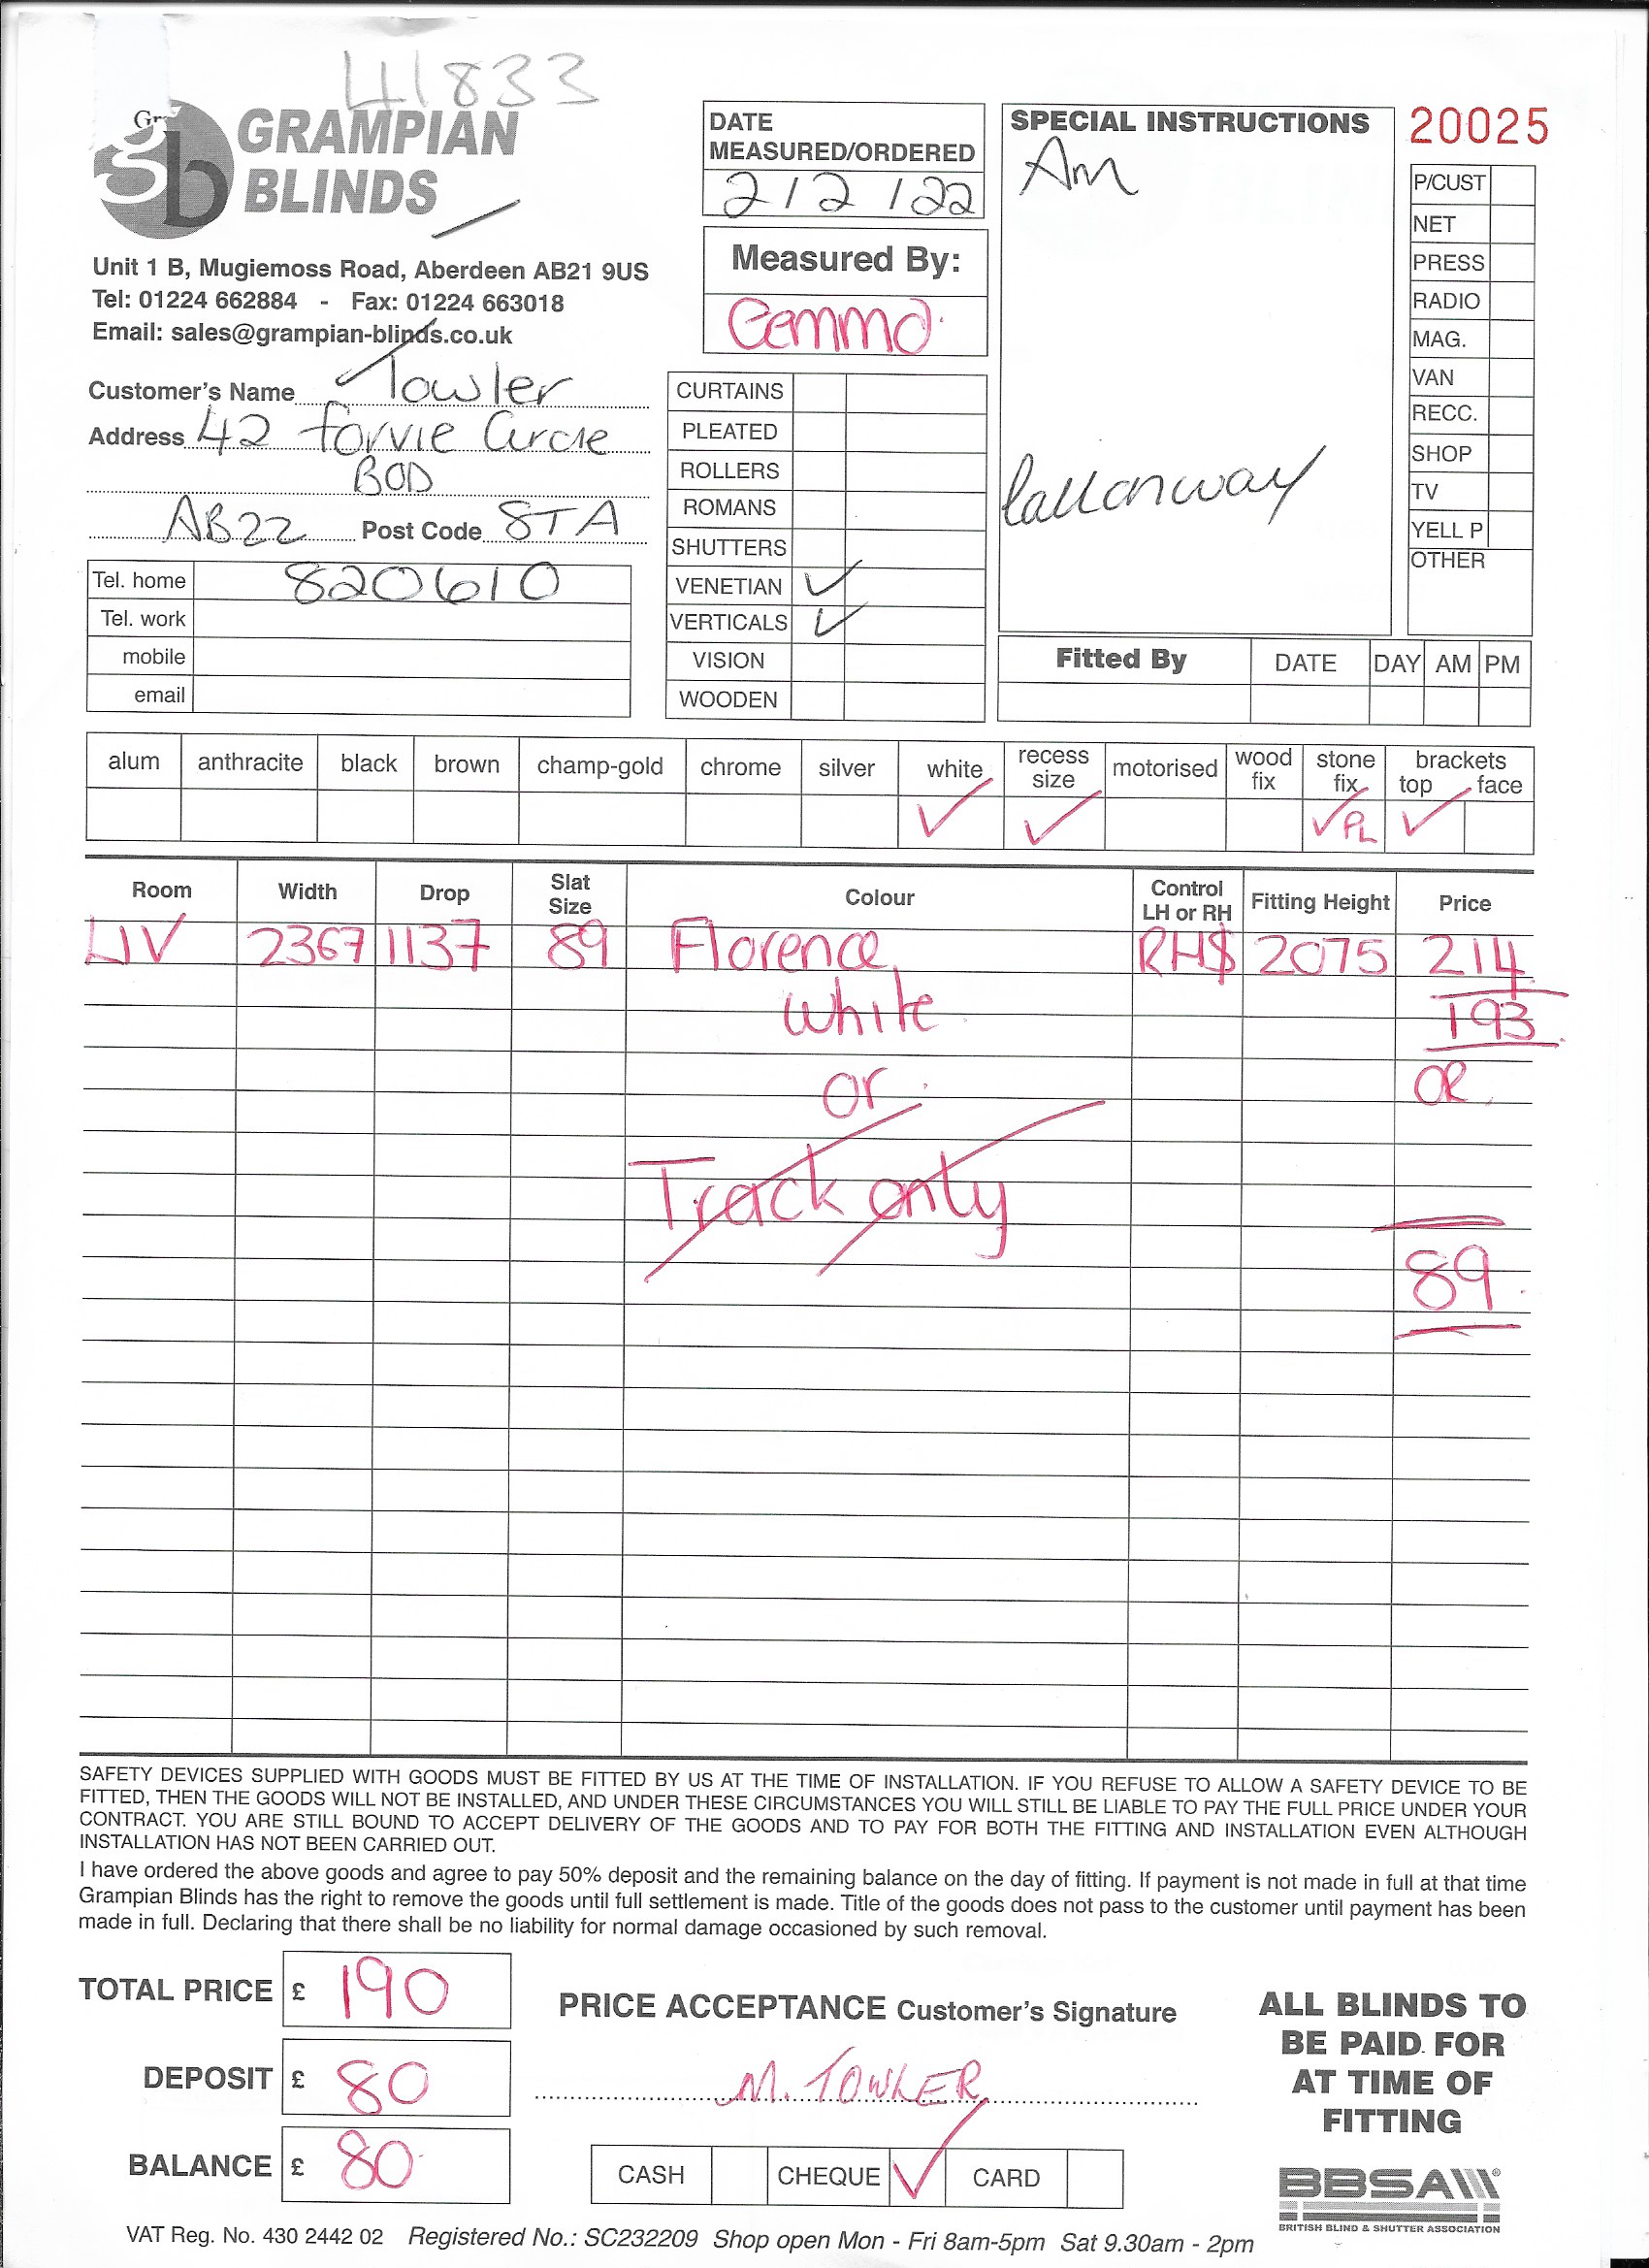 41833
GRAMPIAN
BLINDS
Unit 1 B, Mugiemoss Road, Aberdeen AB21 9US
Tel: 01224 662884 - Fax: 01224 663018
Email: sales@grampian-blinds.co.uk
DATE
MEASURED/ORDERED
2/2/22
Measured By:
Gemma
SPECIAL INSTRUCTIONS
Am
Call on way
20025
P/CUST
NET
PRESS
RADIO
MAG.
VAN
RECC.
SHOP
TV
YELL P
OTHER
Customer's Name Towler
Address 42 Forvie Circle
BOD
AB22 Post Code 8TA
Tel. home 820610
Tel. work
mobile
email
CURTAINS
PLEATED
ROLLERS
ROMANS
SHUTTERS
VENETIAN ✓
VERTICALS ✓
VISION
WOODEN
Fitted By DATE DAY AM PM
alum anthracite black brown champ-gold chrome silver white recess size motorised wood fix stone fix brackets top face
✓ ✓ ✓ PL ✓
Room Width Drop Slat Size Colour Control LH or RH Fitting Height Price
LIV 2367 1137 89 Florence RHS 2075 214
White 193
or OR
Track only
89
SAFETY DEVICES SUPPLIED WITH GOODS MUST BE FITTED BY US AT THE TIME OF INSTALLATION. IF YOU REFUSE TO ALLOW A SAFETY DEVICE TO BE
FITTED, THEN THE GOODS WILL NOT BE INSTALLED, AND UNDER THESE CIRCUMSTANCES YOU WILL STILL BE LIABLE TO PAY THE FULL PRICE UNDER YOUR
CONTRACT. YOU ARE STILL BOUND TO ACCEPT DELIVERY OF THE GOODS AND TO PAY FOR BOTH THE FITTING AND INSTALLATION EVEN ALTHOUGH
INSTALLATION HAS NOT BEEN CARRIED OUT.
I have ordered the above goods and agree to pay 50% deposit and the remaining balance on the day of fitting. If payment is not made in full at that time
Grampian Blinds has the right to remove the goods until full settlement is made. Title of the goods does not pass to the customer until payment has been
made in full. Declaring that there shall be no liability for normal damage occasioned by such removal.
TOTAL PRICE £ 190
DEPOSIT £ 80
BALANCE £ 80
PRICE ACCEPTANCE Customer's Signature
M. TOWLER
CASH CHEQUE ✓ CARD
ALL BLINDS TO
BE PAID FOR
AT TIME OF
FITTING
BBSA
BRITISH BLIND & SHUTTER ASSOCIATION
VAT Reg. No. 430 2442 02 Registered No.: SC232209 Shop open Mon - Fri 8am-5pm Sat 9.30am - 2pm